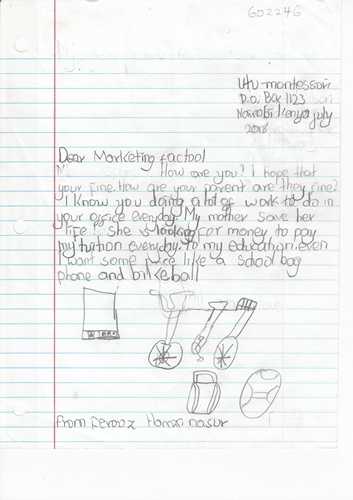 602246
Utu montessori
P.o. Box 1123
Nairobi Kenya July
2018
Dear Marketing factool
How are you? I hope that
your fine. How are your parent are they fine?
I know you doing a lot of work to do in
your office everyday. My mother save her
life is she is looking for money to pay
my tuition everyday. To my education. even
I want some like a sdool bag
phone and bilkeball
from Ferouz Hamza nasur